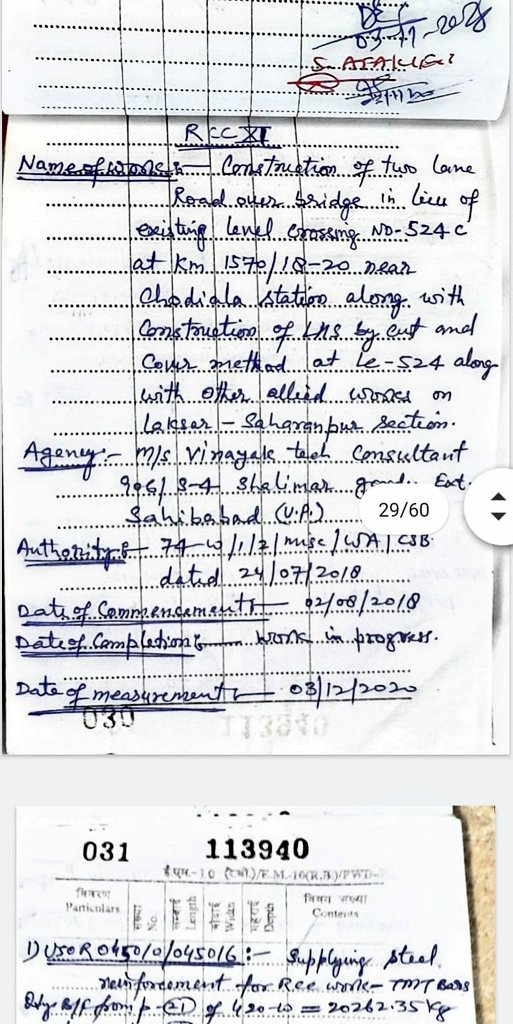 03-11-2020
RCC XI
Name of work :- Construction of two lane
Road over bridge in lieu of
existing level crossing NO-524 C
at Km 1570/18-20 near
Chodiala station along with
Construction of LHS by cut and
Cover method at LC-524 along
with other allied works on
Laksar - Saharanpur section.
Agency :- M/s Vinayak tech Consultant
906/ S-4 Shalimar Ext.
29/60
Sahibabad (U.P.)
Authority :- 74-W/1/2/misc/WA/CSB
dated 24/07/2018
Date of Commencement :- 02/08/2018
Date of Completion :- work in progress.
Date of measurement :- 03/12/2020
030
113940
031 113940
ई.एम.-10 (रे.बी.)/E.M.-10(R.B.)/PWD-
विवरण संख्या लम्बाई चौड़ाई गहराई विषय संख्या
Particulars No. Length Width Depth Contents
1) USOR 045010/045016 :- Supplying steel
reinforcement for Rcc work - TMT Bars
Qty B/F from p-21 of 420-W = 20262.35 Kg